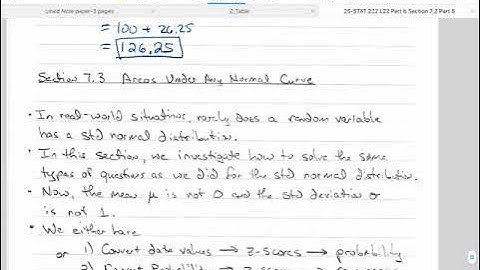 Lined Note paper-3 pages
Z_Table
25-STAT 222 L22 Part 6 Section 7_2 Part 5
= 100 + 26.25
= 126.25
Section 7.3 Areas Under Any Normal Curve
• In real-world situations, rarely does a random variable
has a std normal distribution.
• In this section, we investigate how to solve the same
types of questions as we did for the std normal distribution.
• Now, the mean μ is not 0 and the std deviation σ
is not 1.
• We either have
1) Convert data values → z-scores → probability.
or